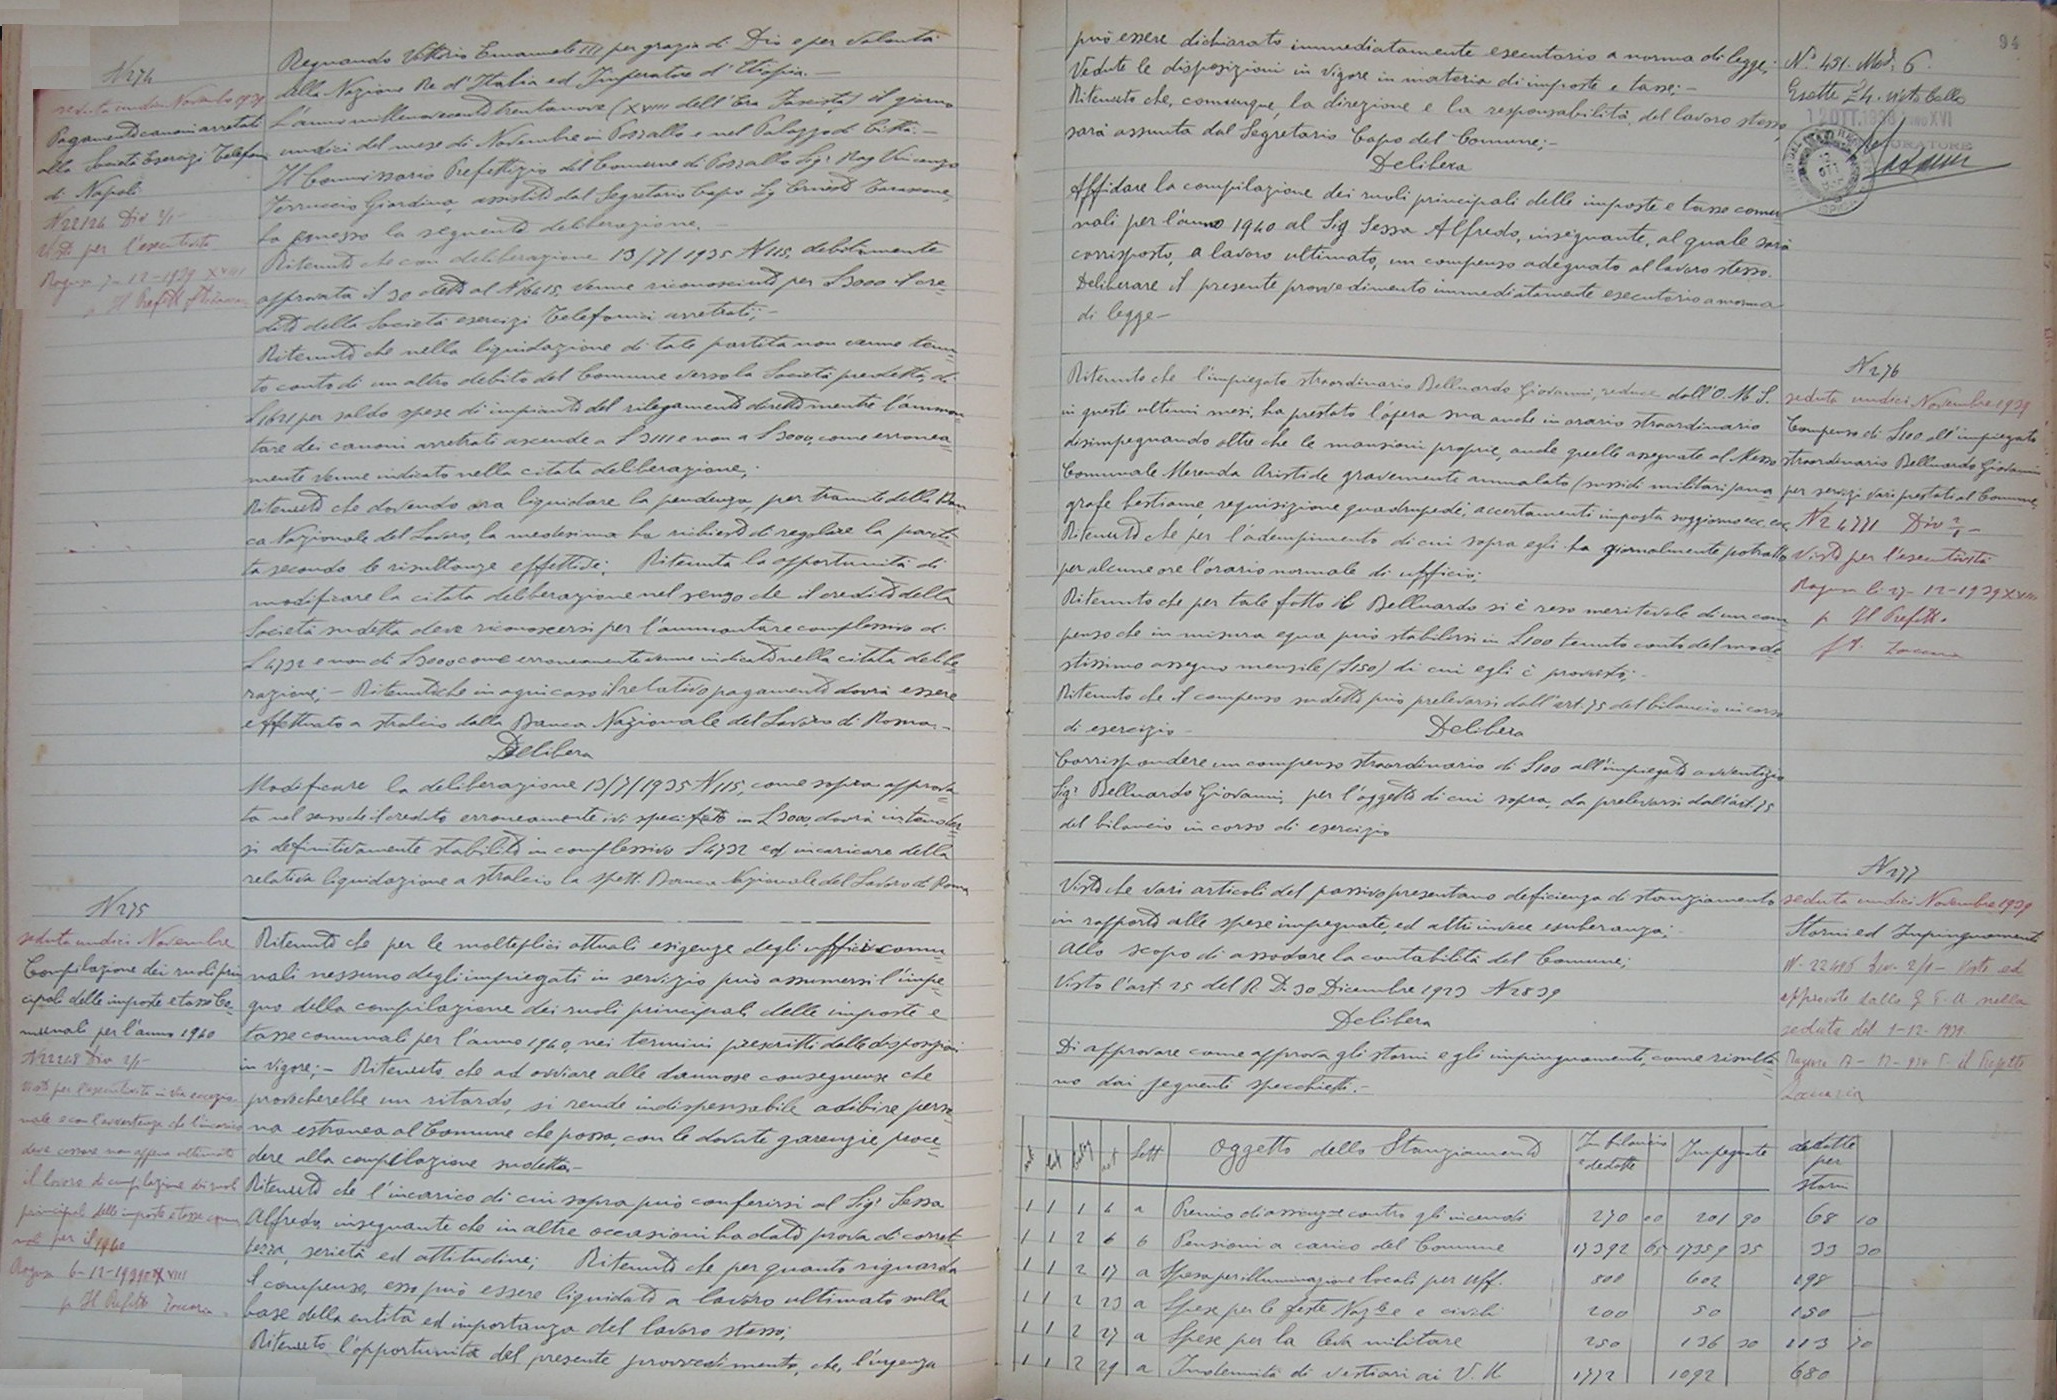 N 274
seduta undici Novembre 1939
Pagamento canoni arretrati
alla Società Esercizi Telefon
di Napoli
N 22124 Div 2/1-
Visto per l'esecutività
Ragusa 7-12-1939 XVIII
p Il Prefetto
Regnando Vittorio Emanuele III per grazia di Dio e per volontà
della Nazione Re d'Italia ed Imperatore d'Etiopia.-
L'anno millenovecentotrentanove (XVIII dell'Era Fascista) il giorno
undici del mese di Novembre in Pozzallo e nel Palazzo di Città.-
Il Commissario Prefettizio del Comune di Pozzallo Sigr Rag Vincenzo
Ferruccio Giardina, assistito dal Segretario Capo Sig
ha emesso la seguente deliberazione.
Ritenuto che con deliberazione 13/7/1935 N 115, debitamente
approvata il 30 detto al N 16415, venne riconosciuto per £ 3000 il cre=
dito della Società esercizi Telefonici arretrati;-
Ritenuto che nella liquidazione di tale partita non venne tenu=
to conto di un altro debito del Comune verso la Società predetta, di
£ 1621 per saldo spese di impianto del rilegamento diretto mentre l'ammon=
tare dei canoni arretrati ascende a £ 3111 e non a £ 3000, come erronea=
mente venne indicato nella citata deliberazione;.
Ritenuto che dovendo ora liquidare la pendenza, per tramite della Ban
ca Nazionale del Lavoro, la medesima ha richiesto di regolare la parti=
ta secondo le risultanze effettive; Ritenuta la opportunità di
modificare la citata deliberazione nel senso che il credito della
Società sudetta deve riconoscersi per l'ammontare complessivo di
£ 4732 e non di £ 3000 come erroneamente venne indicato nella citata delibe=
razione;- Ritenuto che in ogni caso il relativo pagamento dovrà essere
effettuato a stralcio dalla Banca Nazionale del Lavoro di Roma.-
Delibera
Modificare la deliberazione 13/7/1935 N 115, come sopra approva=
ta nel senso che il credito erroneamente ivi specificato in £ 3000, dovrà intender=
si definitivamente stabilito in complessivo £ 4732 ed incaricare della
relativa liquidazione a stralcio la spett. Banca Nazionale del Lavoro di Roma
N 275
seduta undici Novembre
Compilazione dei ruoli prin
cipali delle imposte e tasse Co=
munali per l'anno 1940
N 22248 Div 2/1-
Visto per l'esecutività in via eccezio=
nale e con l'avvertenza che l'incarico
deve cessare non appena ultimato
il lavoro di compilazione dei ruoli
principali delle imposte e tasse comu
nali per il 1940
Ragusa 6-12-1939 XVIII
p Il Prefetto
Ritenuto che per le molteplici attuali esigenze degli uffici comu=
nali nessuno degli impiegati in servizio può assumersi l'impe=
gno della compilazione dei ruoli principali delle imposte e
tasse comunali per l'anno 1940, nei termini prescritti dalle disposizioni
in vigore;- Ritenuto che ad ovviare alle dannose conseguenze che
provocherebbe un ritardo, si rende indispensabile adibire perso=
na estranea al Comune che possa, con le dovute garenzie proce=
dere alla compilazione sudetta-
Ritenuto che l'incarico di cui sopra può conferirsi al Sigr Sessa
Alfredo, insegnante che in altre occasioni ha dato prova di corret=
tezza, serietà ed attitudine; Ritenuto che per quanto riguarda
il compenso, esso può essere liquidato a lavoro ultimato sulla
base della entità ed importanza del lavoro stesso;
Ritenuto l'opportunità del presente provvedimento, che, l'urgenza
94
può essere dichiarato immediatamente esecutorio a norma di legge;
Vedute le disposizioni in vigore in materia di imposte e tasse;-
Ritenuto che, comunque, la direzione e la responsabilità del lavoro stesso,
sarà assunta dal Segretario Capo del Comune;-
Delibera
Affidare la compilazione dei ruoli principali delle imposte e tasse comu=
nali per l'anno 1940 al Sig Sessa Alfredo, insegnante, al quale sarà
corrisposto, a lavoro ultimato, un compenso adeguato al lavoro stesso.
Deliberare il presente provvedimento immediatamente esecutorio a norma
di legge-
N° 451. Mod. 6
Esatte £ 4.
OTT. 1938 ANNO XVI
Ritenuto che l'impiegato straordinario Belluardo Giovanni, reduce dall'O. M. S.
in questi ultimi mesi, ha prestato l'opera sua anche in orario straordinario
disimpegnando oltre che le mansioni proprie, anche quelle assegnate al Messo
Comunale Merenda Aristide gravemente ammalato (sussidi militari, ana=
grafe bestiame, requisizione quadrupedi, accertamenti imposta soggiorno ecc. ecc
Ritenuto che per l'adempimento di cui sopra egli ha giornalmente protratto
per alcune ore l'orario normale di ufficio;
Ritenuto che per tale fatto il Belluardo si è reso meritevole di un com
penso che in misura equa può stabilirsi in £ 100 tenuto conto del mode=
stissimo assegno mensile (£ 150) di cui egli è provvisto;-
Ritenuto che il compenso sudetto può prelevarsi dall'art. 75 del bilancio in corso
di esercizio- Delibera
Corrispondere un compenso straordinario di £ 100 all'impiegato avventizio
Sigr Belluardo Giovanni, per l'oggetto di cui sopra, da prelevarsi dall'art. 75
del bilancio in corso di esercizio
N 276
seduta undici Novembre 1939
Compenso di £ 100 all'impiegato
straordinario Belluardo Giovanni
per servizi vari prestati al Comune,
N 24771 Div 2/1-
Visto per l'esecutività
Ragusa li 27-12-1939 XVIII
p Il Prefetto
Visto che vari articoli del passivo presentano deficienza di stanziamento
in rapporto alle spese impegnate, ed altri invece esuberanza;
Allo scopo di assodare la contabilità del Comune;
Visto l'art. 25 del R. D. 30 Dicembre 1923 N 2839
Delibera
Di approvare come approva gli storni e gli impinguamenti, come risulta=
no dai seguenti specchietti.-
N 277
seduta undici Novembre 1939
Storni ed Impinguamenti
N. 22496 Div. 2/1- Visto ed
approvato dalla G. P. A. nella
seduta del 1-12-1939.
Ragusa 17-12-939 p il Prefetto
art Lett Oggetto dello Stanziamento In bilancio e dedotte Impegnate dedotte per storni
1 1 1 6 a Premio di assicurazne contro gli incendi 270 00 201 90 68 10
1 1 2 6 b Pensioni a carico del Comune 17392 65 17359 35 33 30
1 1 2 17 a Spesa per illuminazione locali per uff. 800 602 198 —
1 1 2 23 a Spese per le feste Nazle e civili 200 50 150 —
1 1 2 27 a Spese per la leva militare 250 136 30 113 70
1 1 2 29 a Indennità di vestiari ai V. U. 1772 1092 680